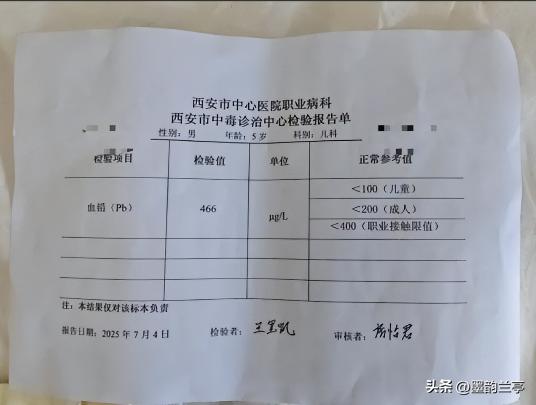 西安市中心医院职业病科
西安市中毒诊治中心检验报告单
性别：男 年龄：5岁 科别：儿科
检验项目 检验值 单位 正常参考值
血铅（Pb） 466 μg/L <100（儿童）
<200（成人）
<400（职业接触限值）
注：本结果仅对该标本负责
报告日期：2025年7月4日 检验者： 审核者：
头条 @墨韵兰亭